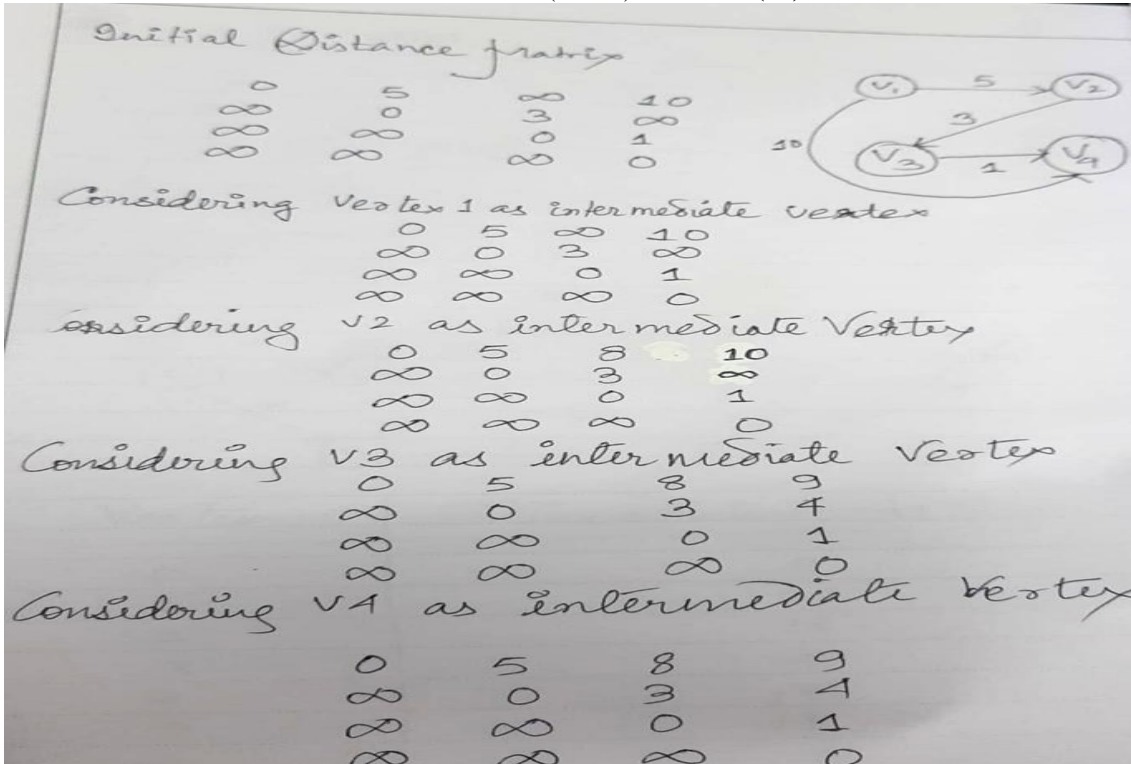 Initial Distance Matrix
0 5 ∞ 10
∞ 0 3 ∞
∞ ∞ 0 1
∞ ∞ ∞ 0
V1 5 V2
3
10 V3 1 V4
Considering Vertex 1 as intermediate vertex
0 5 ∞ 10
∞ 0 3 ∞
∞ ∞ 0 1
∞ ∞ ∞ 0
onsidering V2 as intermediate Vertex
0 5 8 10
∞ 0 3 ∞
∞ ∞ 0 1
∞ ∞ ∞ 0
Considering V3 as intermediate Vertex
0 5 8 9
∞ 0 3 4
∞ ∞ 0 1
∞ ∞ ∞ 0
Considering V4 as intermediate Vertex
0 5 8 9
∞ 0 3 4
∞ ∞ 0 1
∞ ∞ ∞ 0